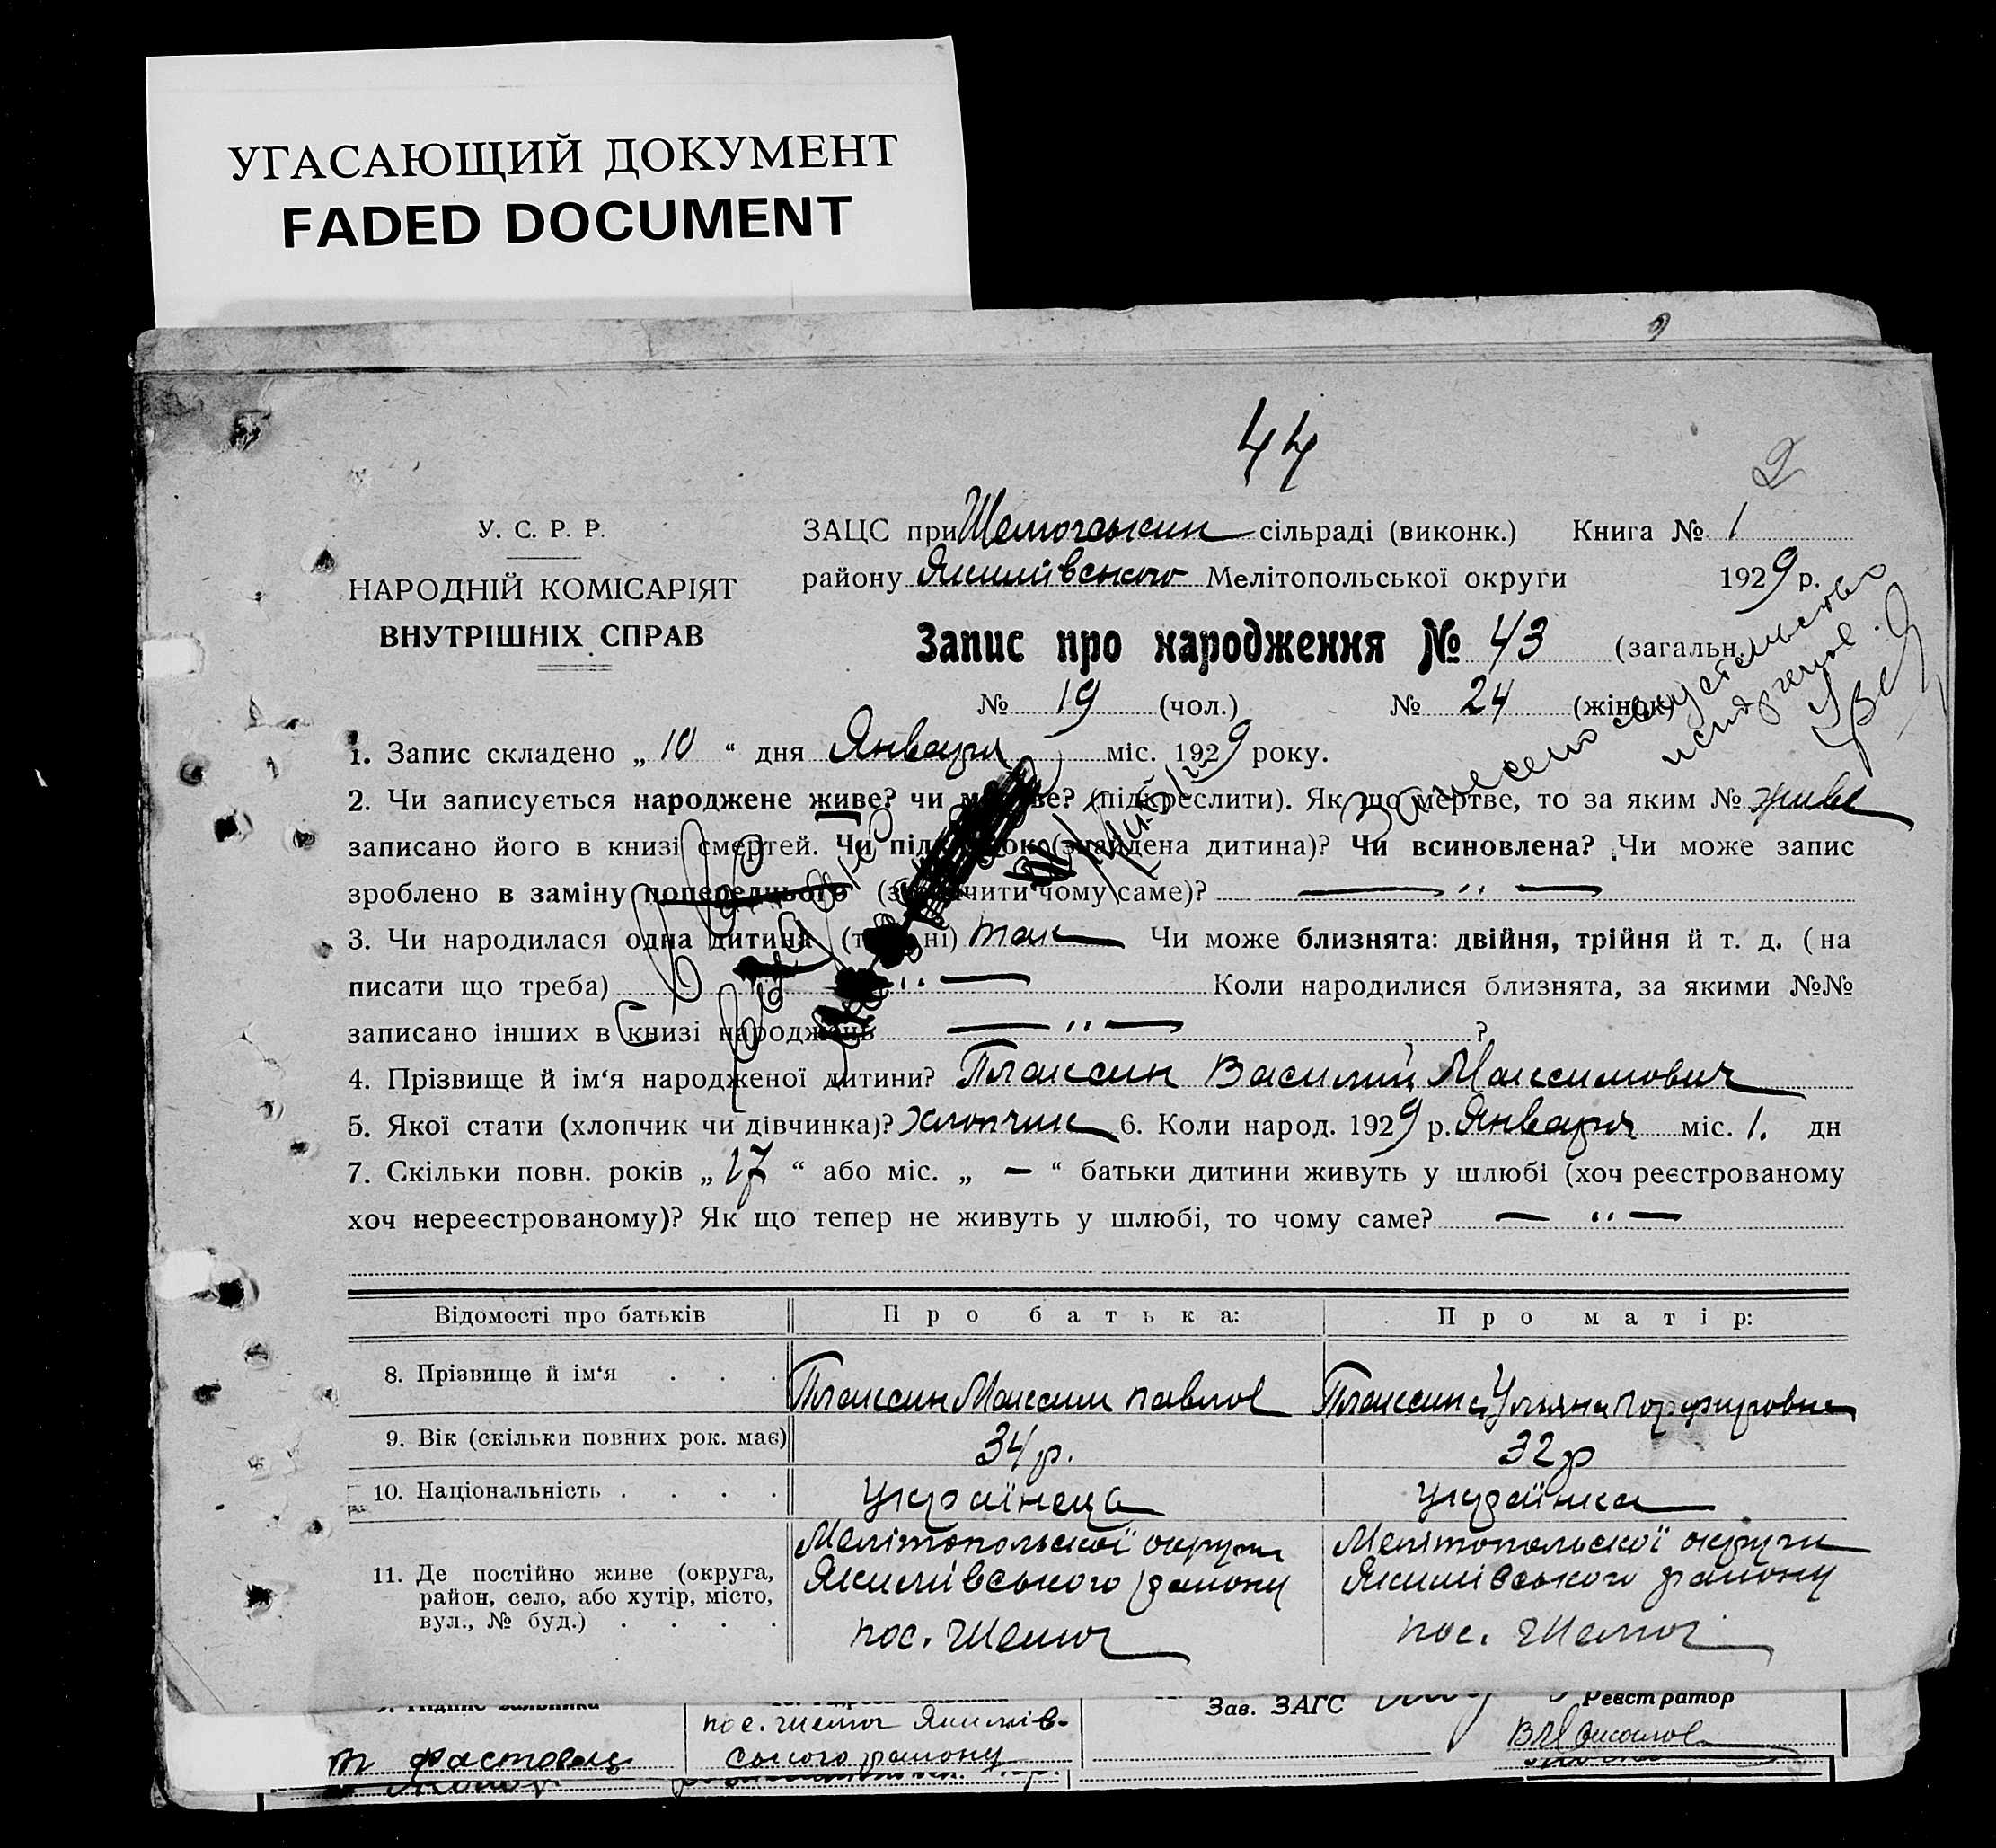 УГАСАЮЩИЙ ДОКУМЕНТ
FADED DOCUMENT
9
44
2
У. С. Р. Р.
НАРОДНІЙ КОМІСАРІЯТ
ВНУТРІШНІХ СПРАВ
ЗАЦС при сільраді (виконк.) Книга № 1
району Якимівського Мелітопольської округи 1929 р.
Запис про народження № 43 (загальн.
№ 19 (чол.) № 24 (жінок)
1. Запис складено „ 10 “ дня Января міс. 1929 року.
2. Чи записується народжене живе? чи мертве? (підкреслити). Як що мертве, то за яким № живе
записано його в книзі смертей. Чи підкидок (знайдена дитина)? Чи всиновлена? Чи може запис
зроблено в заміну попереднього (зазначити чому саме)? — „ —
3. Чи народилася одна дитина (так, ні) так Чи може близнята: двійня, трійня й т. д. (на
писати що треба) „ — Коли народилися близнята, за якими №№
записано інших в книзі народжень — „ — ?
4. Прізвище й ім‘я народженої дитини? Плаксин Василий Максимович
5. Якої стати (хлопчик чи дівчинка)? Хлопчик 6. Коли народ. 1929 р. Января міс. 1. дн
7. Скільки повн. років „ 17 “ або міс. „ — “ батьки дитини живуть у шлюбі (хоч реєстрованому
хоч нереєстрованому)? Як що тепер не живуть у шлюбі, то чому саме? — „ —
Відомості про батьків Про батька: Про матір:
8. Прізвище й ім‘я . . . Плаксин Максим Павлов Плаксина Ульяна Порфировна
9. Вік (скільки повних рок. має) 34 р. 32 р
10. Національність . . . . Українець Українка
11. Де постійно живе (округа, район, село, або хутір, місто, вул., № буд.) . . . .
Мелітопольскої округи Мелітопольскої округи
Якимівського району Якимівського району
пос. Шемог пос. Шемог
Зав. ЗАГС Реєстратор
пос. Шемог Якимів-
ського району